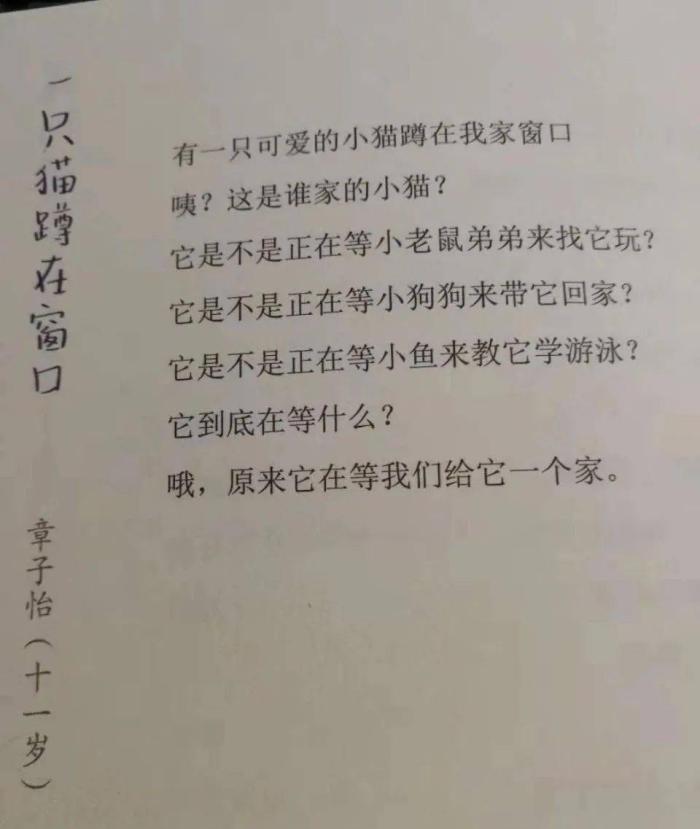 一只猫蹲在窗口
章子怡（十一岁）
有一只可爱的小猫蹲在我家窗口
咦？这是谁家的小猫？
它是不是正在等小老鼠弟弟来找它玩？
它是不是正在等小狗狗来带它回家？
它是不是正在等小鱼来教它学游泳？
它到底在等什么？
哦，原来它在等我们给它一个家。